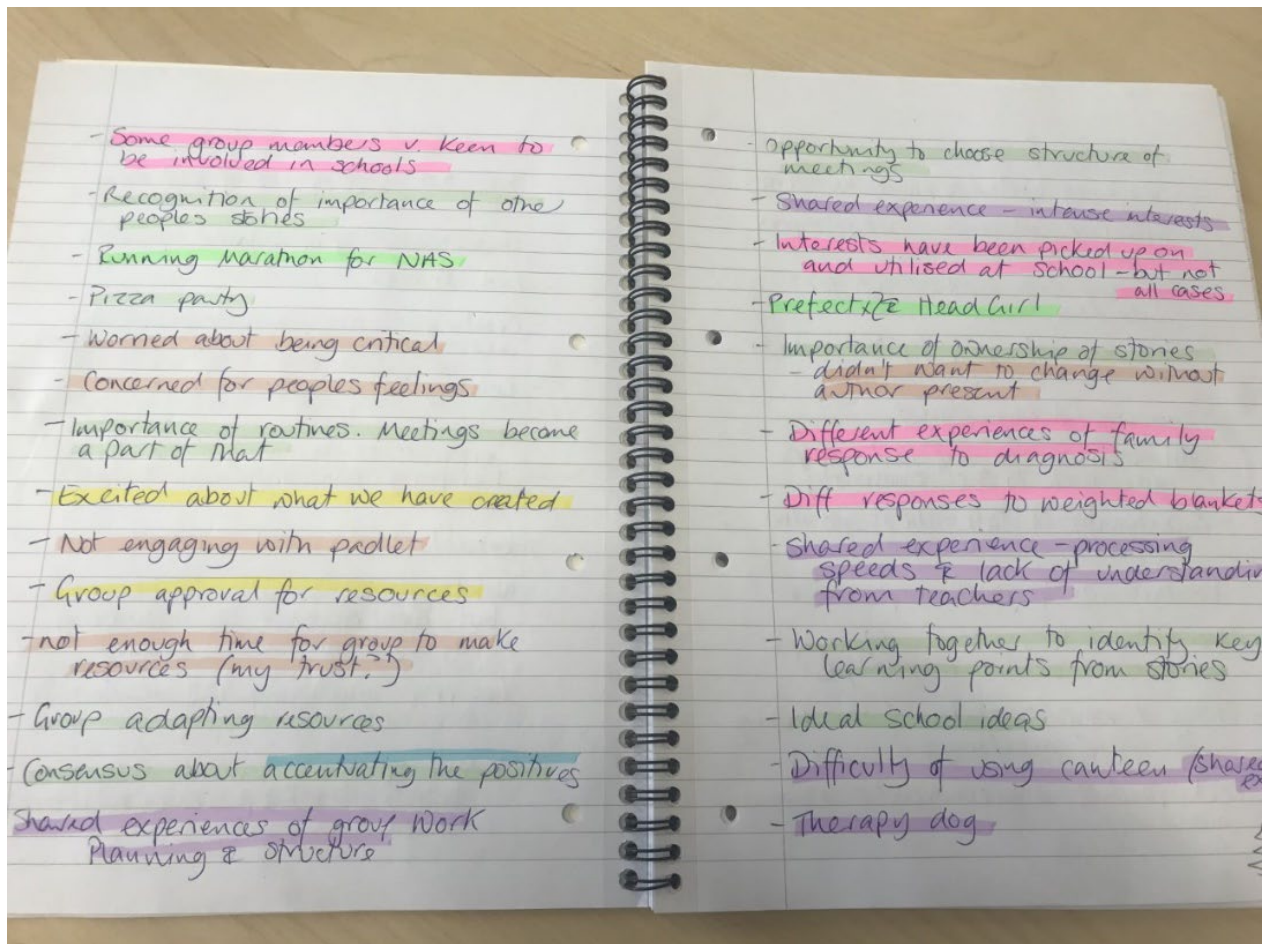 - Some group members v. keen to
be involved in schools
- Recognition of importance of other
peoples stories
- Running Marathon for NAS
- Pizza party
- Worried about being critical
- Concerned for peoples feelings
- Importance of routines. Meetings become
a part of that
- Excited about what we have created
- Not engaging with padlet
- Group approval for resources
- not enough time for group to make
resources (my trust?)
- Group adapting resources
- Consensus about accentuating the positives
Shared experiences of group work
Planning & structure
- Opportunity to choose structure of
meetings
- Shared experience - intense interests
- Interests have been picked up on
and utilised at school - but not
all cases
- Prefect & Head Girl
- Importance of ownership of stories
- didn't want to change without
author present
- Different experiences of family
response to diagnosis
- Diff responses to weighted blankets
- Shared experience - processing
speeds & lack of understandin
from teachers
- Working together to identify key
learning points from stories
- Ideal school ideas
- Difficulty of using canteen (shared
- Therapy dog